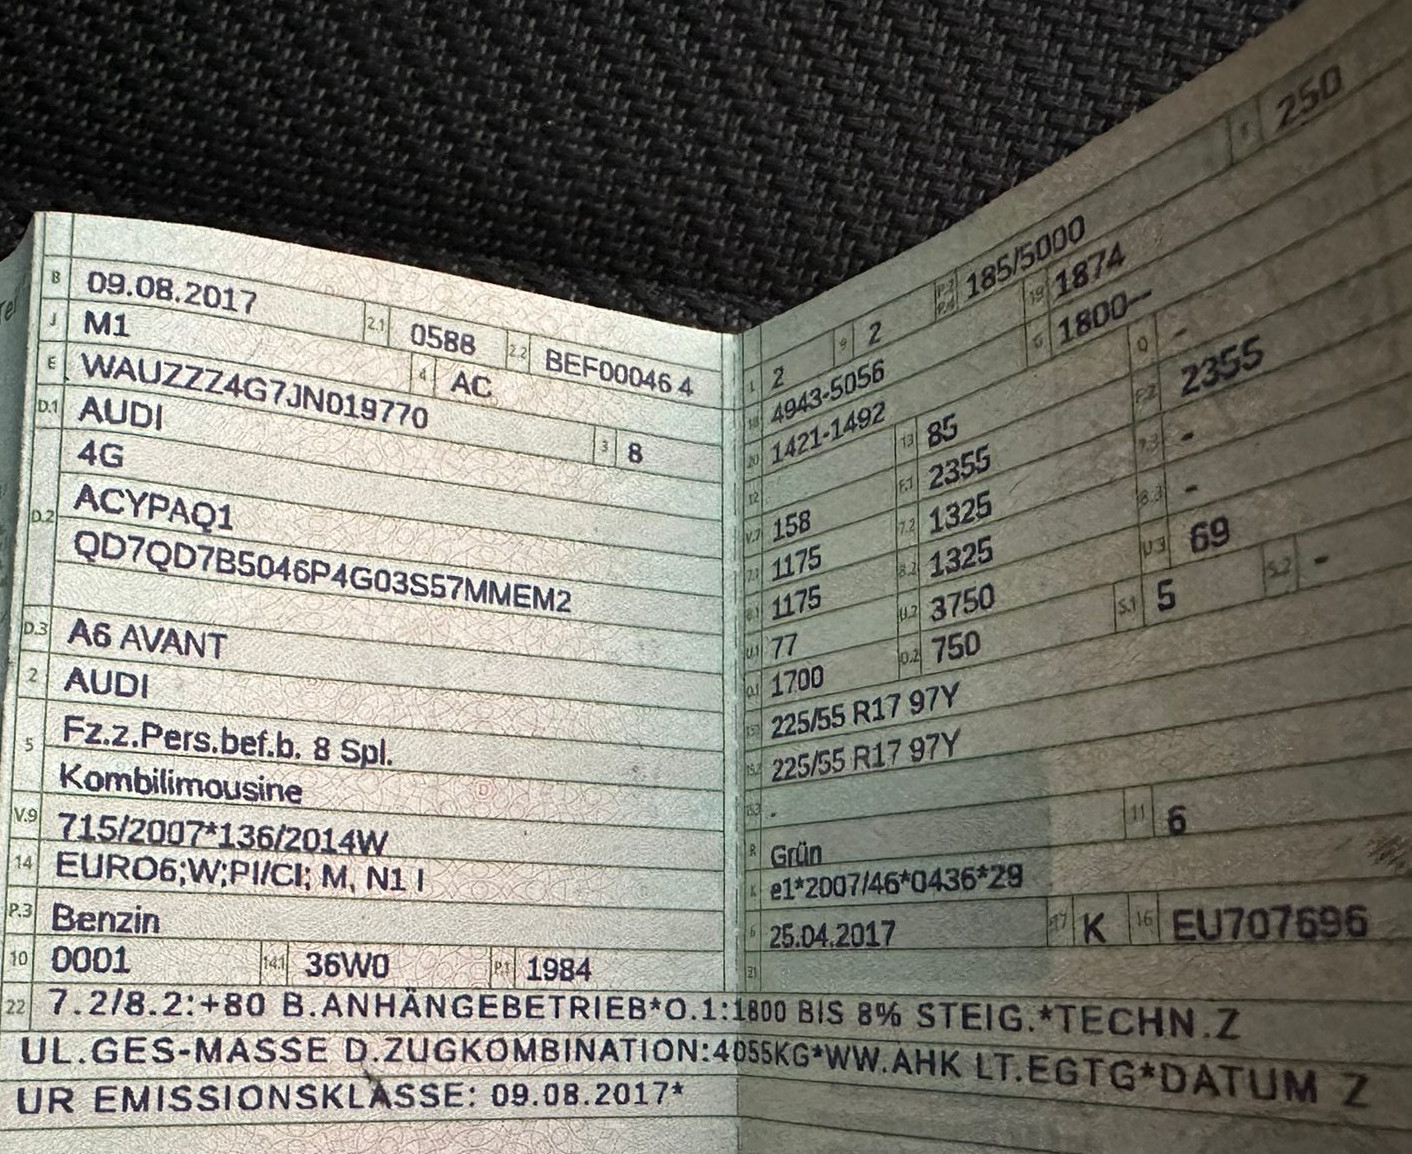 B 09.08.2017 2.1 0588 2.2 BEF00046 4
J M1 4 AC
E WAUZZZ4G7JN019770 3 8
D.1 AUDI
D.2 4G
ACYPAQ1
QD7QD7B5046P4G03S57MMEM2
D.3 A6 AVANT
2 AUDI
5 Fz.z.Pers.bef.b. 8 Spl.
Kombilimousine
V.9 715/2007*136/2014W
14 EURO6;W;PI/CI; M, N1 I
P.3 Benzin
10 0001 14.1 36W0 P.1 1984
L 2 9 2 P.2 P.4 185/5000 T 250
18 4943-5056 19 1874
20 1421-1492 G 1800--
12 13 85 Q -
V.7 158 F.1 2355 F.2 2355
7.1 1175 7.2 1325 7.3 -
8.1 1175 8.2 1325 8.3 -
U.1 77 U.2 3750 U.3 69
O.1 1700 O.2 750 S.1 5 S.2 -
15.1 225/55 R17 97Y
15.2 225/55 R17 97Y
15.3 -
R Grün 11 6
K e1*2007/46*0436*29
6 25.04.2017 17 K 16 EU707696
21
22 7.2/8.2:+80 B.ANHÄNGEBETRIEB*O.1:1800 BIS 8% STEIG.*TECHN.Z
UL.GES-MASSE D.ZUGKOMBINATION:4055KG*WW.AHK LT.EGTG*DATUM Z
UR EMISSIONSKLASSE: 09.08.2017*